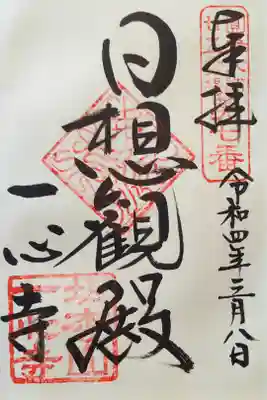 奉拝
令和四年三月八日
日想観殿
一心寺